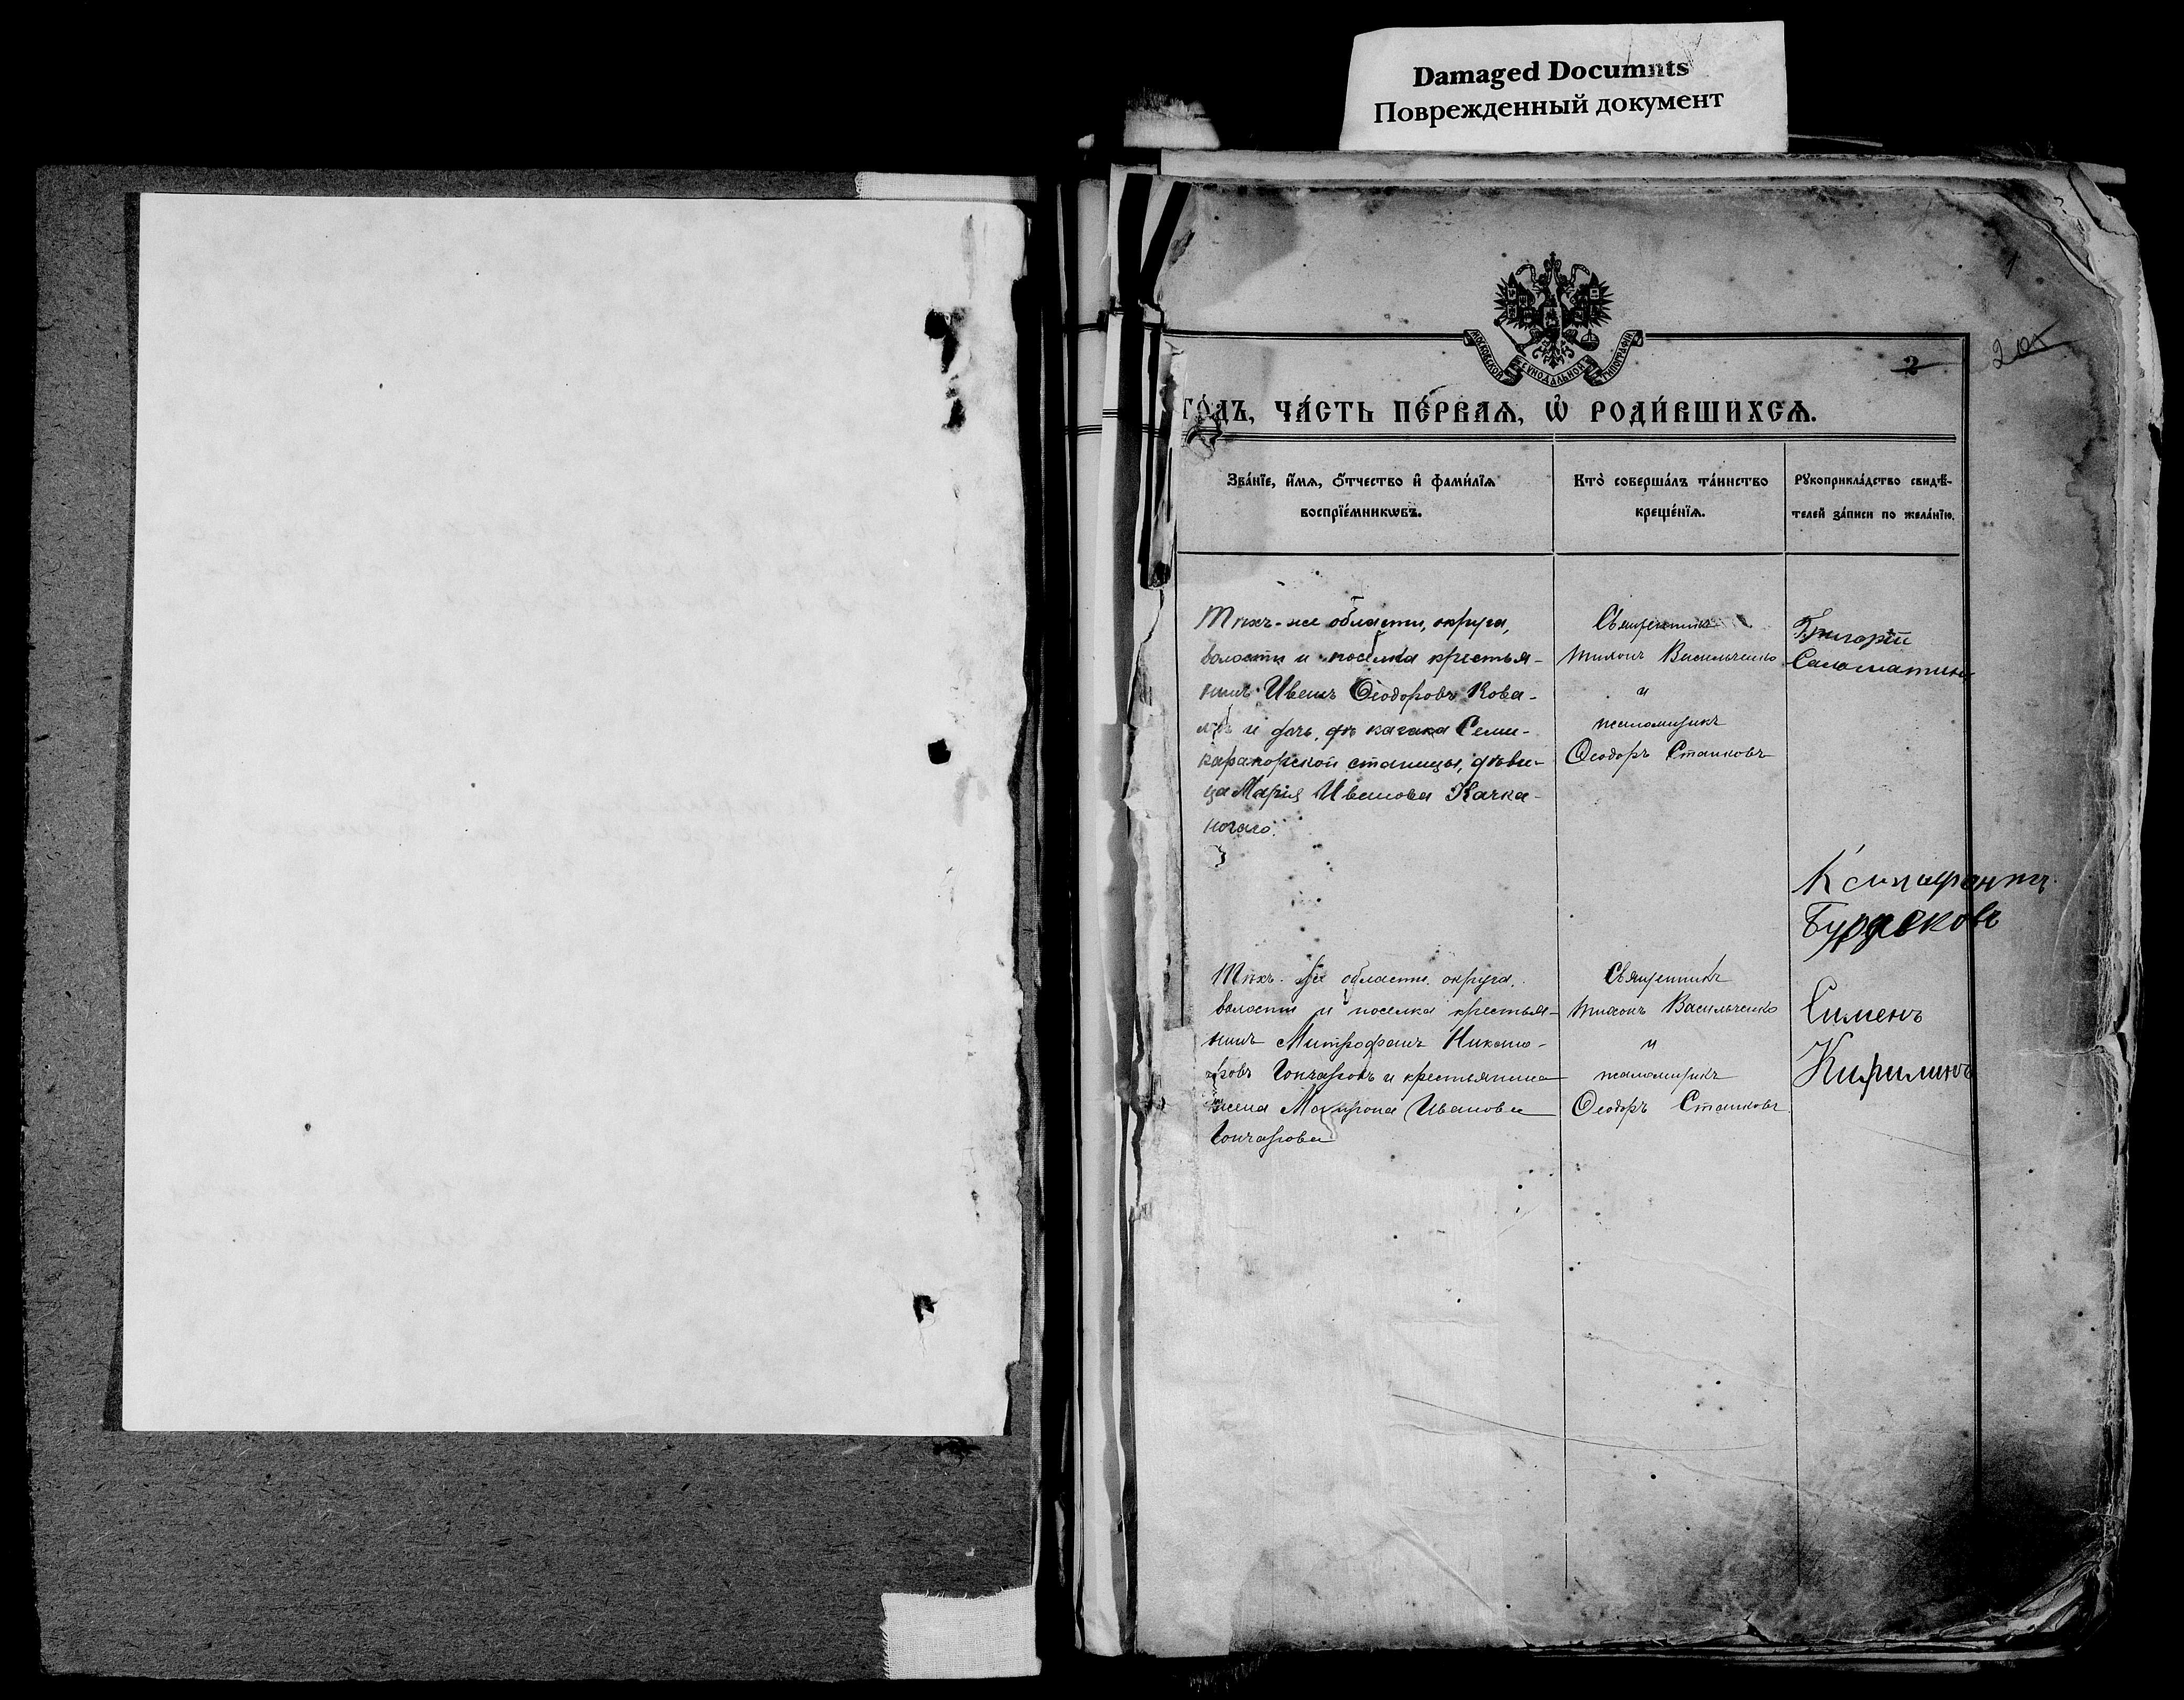 Damaged Documnts
Поврежденный документ
1
МОСКОВСКОЙ СѴНОДАЛЬНОЙ ТИПОГРАФІИ
2
205
ГО́ДЪ, ЧА́СТЬ ПЕ́РВАѦ, Ѡ҆ РОДИ́ВШИХСѦ.
Зва́нїе, и҆́мѧ, ѻ҆́тчество и҆ фами́лїѧ
воспрїе́мникѡвъ.
Кто̀ соверша́лъ та́инство
креще́нїѧ.
Рꙋкоприкла́дство свидѣ́-
телей за́писи по жела́нїю.
Тѣхъ-же области, округа,
волости и поселка крестья-
нинъ Иванъ Ѳеодоровъ Кова-
и дочь казака Семи-
каракорской станицы, дѣви-
ца Марія Иванова Качка-
Священникъ
Тихонъ Васильченко
и
псаломщикъ
Ѳеодоръ Станковъ
Григорій
Саломатинъ
Бурдековъ
Тѣхъ-же области, округа,
волости и поселка крестья-
нинъ Митрофанъ Никано-
ровъ Гончаровъ и крестьянина
жена Матрона Иванова
Гончарова
Священникъ
Тихонъ Васильченко
и
псаломщикъ
Ѳеодоръ Станковъ
Сименъ
Кирилинъ